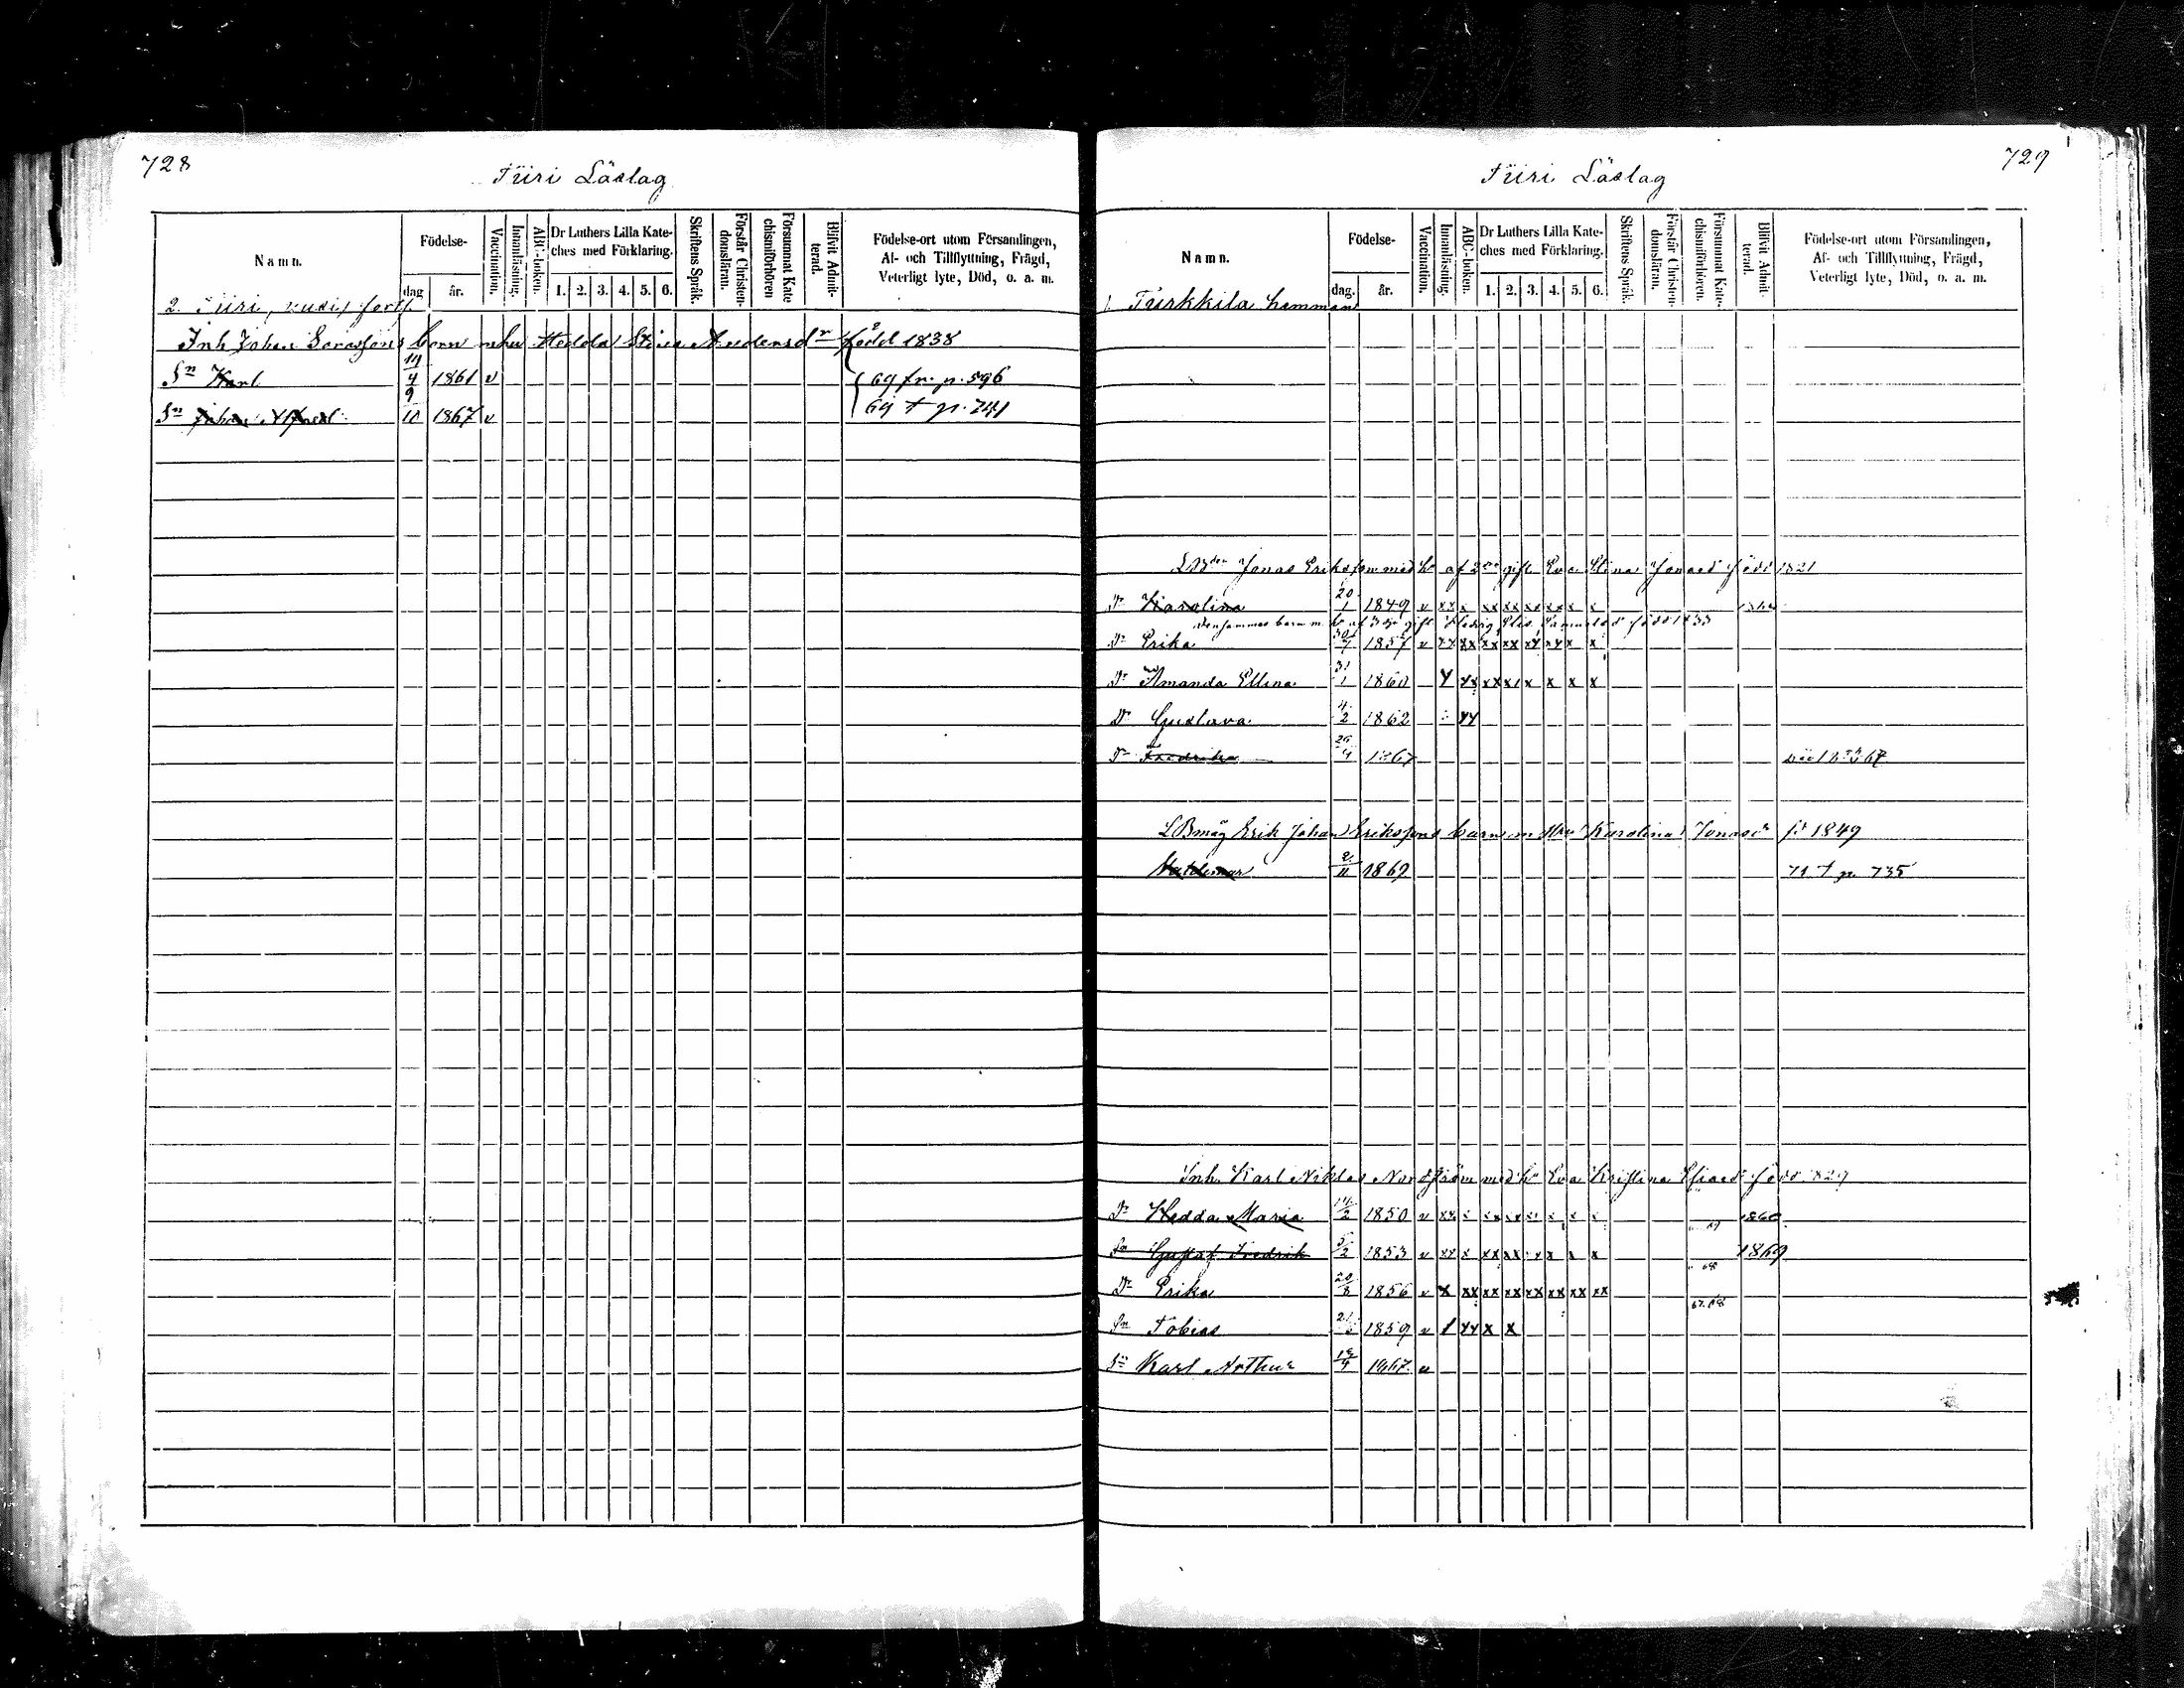 728
Tiiri Läslag
Namn.
Födelse-
dag
år.
Vaccination.
Innanläsning.
ABC-boken.
Dr Luthers Lilla Kate-
ches med Förklaring.
1. 2. 3. 4. 5. 6.
Skriftens Språk.
Förstår Christen-
domsläran.
Försummat Kate
chismiförhören
Blifvit Admit-
terad.
Födelse-ort utom Församlingen,
Af- och Tillflyttning, Frägd,
Veterligt lyte, Död, o. a. m.
2. Tiiri,
Inh Johan barn Hedda Stina född 1838
Sn Karl 14/4 1861 v 69 fr. p. 596
Sn Johan Alfred 9/10 1867 v 69 t p. 741
729
Tiiri Läslag
Namn.
Födelse-
dag.
år.
Vaccination.
Innanläsning.
ABC-boken.
Dr Luthers Lilla Kate-
ches med Förklaring.
1. 2. 3. 4. 5. 6.
Skriftens Språk.
Förstår Christen-
domsläran.
Försummat Kate-
chismiförhören.
Blifvit Admit-
terad.
Födelse-ort utom Församlingen,
Af- och Tillflyttning, Frägd,
Veterligt lyte, Död, o. a. m.
1. Turkkila hemman
Jonas Eriksson med h. af 2dra gift Eva Stina Jonasd född 1821
Dr Karolina 20/1 1849 v xx x xx xx xx xx x x
Densammes barn m. h. af 3dje gift Hedvig född 1833
Dr Erika 30/7 1857 v xx xx xx xx xx xx x
Dr Amanda Ellina 31/1 1860 x xx xx xx x x x x
Dr Gustava 4/2 1862 xx
Dr Fredrika 29/4 1867
LBmåg Erik Johan Erikssons barn m Hu Karolina Jonasdr fd 1849
Waldemar 2/11 1869 71 t p. 735
Inh. Karl Niklas Nordström med h. Eva Kristina född 1829
Dr Hedda Maria 14/2 1850 v
Sn Gustaf Fredrik 5/2 1853 v xx x xx xx xx x x 1869
68
Dr Erika 20/8 1856 v x xx xx xx xx xx xx xx
67.68
Sn Tobias 1859 v xx x x
Sn Karl Arthur 1867 v